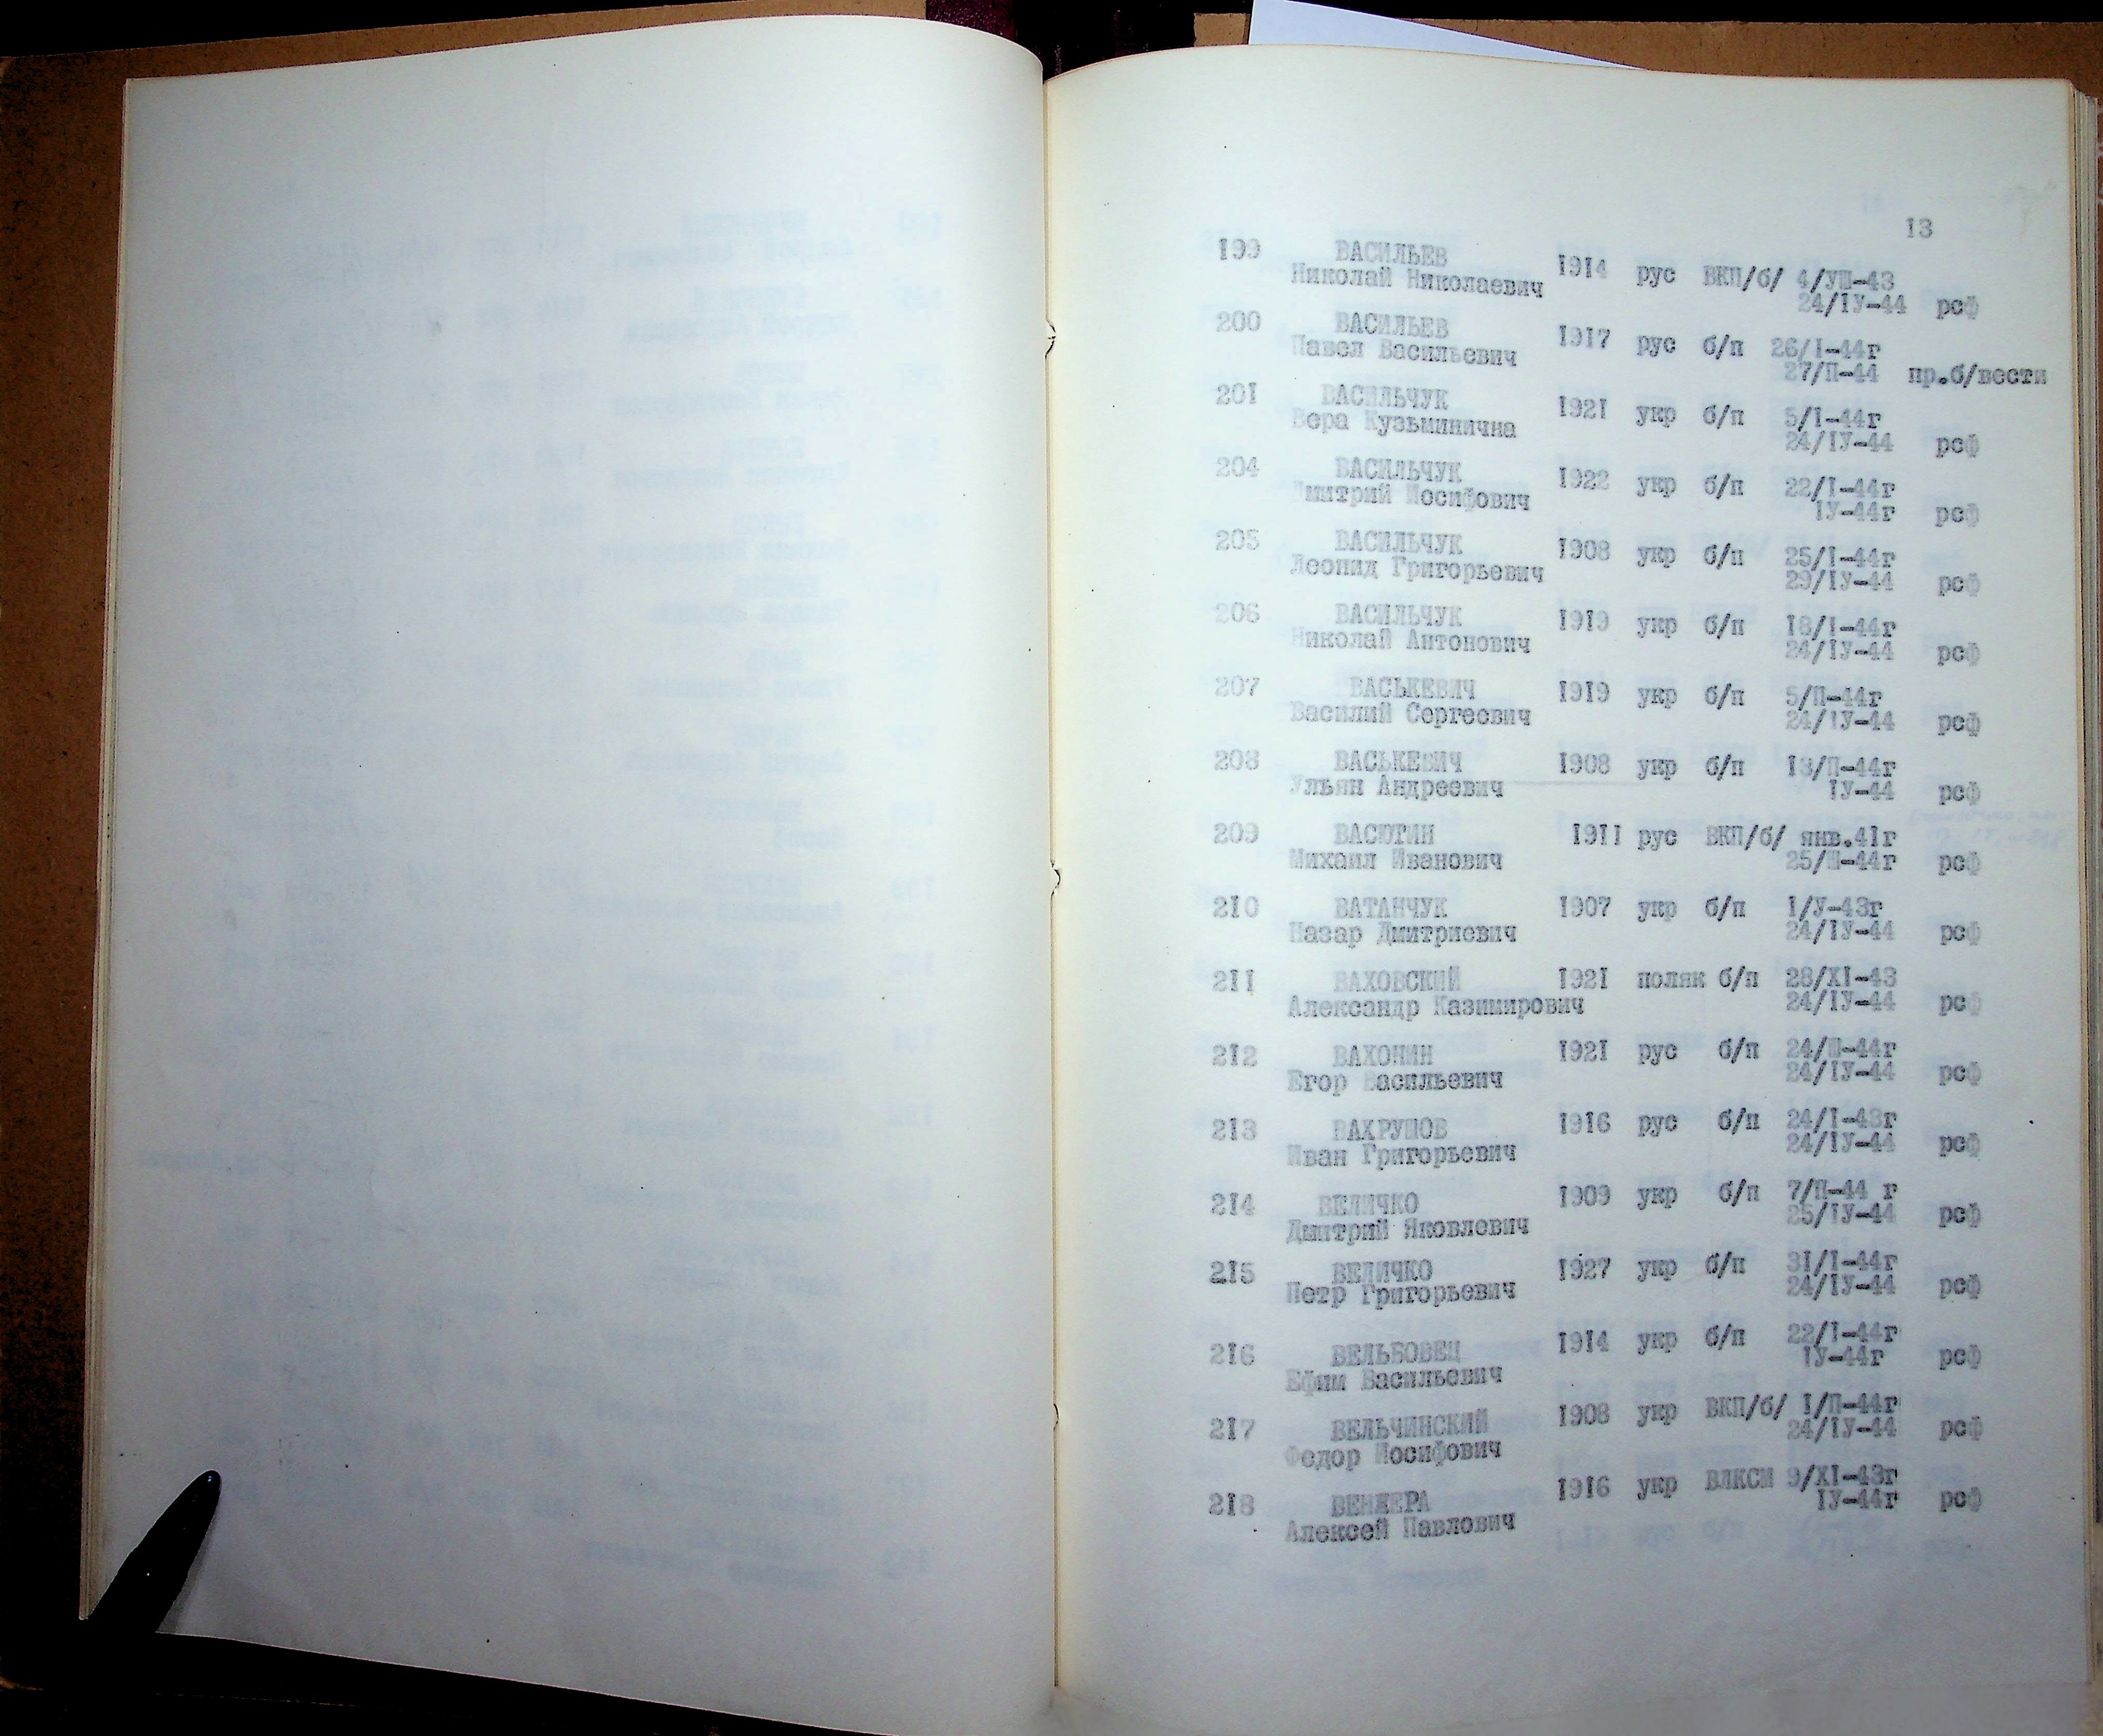 13
199 ВАСИЛЬЕВ 1914 рус ВКП/б/ 4/УШ-43
Николай Николаевич 24/IУ-44 рсф
200 ВАСИЛЬЕВ 1917 рус б/п 26/I-44г
Павел Васильевич 27/П-44 пр.б/вести
201 ВАСИЛЬЧУК 1921 укр б/п 5/I-44г
Вера Кузьминична 24/IУ-44 рсф
204 ВАСИЛЬЧУК 1922 укр б/п 22/I-44г
Дмитрий Иосифович IУ-44г рсф
205 ВАСИЛЬЧУК 1908 укр б/п 25/I-44г
Леонид Григорьевич 29/IУ-44 рсф
206 ВАСИЛЬЧУК 1919 укр б/п 18/I-44г
Николай Антонович 24/IУ-44 рсф
207 ВАСЬКЕВИЧ 1919 укр б/п 5/П-44г
Василий Сергеевич 24/IУ-44 рсф
208 ВАСЬКЕВИЧ 1908 укр б/п 13/П-44г
Ульян Андреевич IУ-44 рсф
209 ВАСЮТИН 1911 рус ВКП/б/ янв.41г
Михаил Иванович 25/Ш-44г рсф
210 ВАТАНЧУК 1907 укр б/п 1/У-43г
Назар Дмитриевич 24/IУ-44 рсф
211 ВАХОВСКИЙ 1921 поляк б/п 28/XI-43
Александр Казимирович 24/IУ-44 рсф
212 ВАХОНИН 1921 рус б/п 24/Ш-44г
Егор Васильевич 24/IУ-44 рсф
213 ВАХРУШОВ 1916 рус б/п 24/I-43г
Иван Григорьевич 24/IУ-44 рсф
214 ВЕЛИЧКО 1909 укр б/п 7/П-44 г
Дмитрий Яковлевич 25/IУ-44 рсф
215 ВЕЛИЧКО 1927 укр б/п 31/I-44г
Петр Григорьевич 24/IУ-44 рсф
216 ВЕЛЬБОВЕЦ 1914 укр б/п 22/I-44г
Ефим Васильевич IУ-44г рсф
217 ВЕЛЬЧИНСКИЙ 1908 укр ВКП/б/ 1/П-44г
Федор Иосифович 24/IУ-44 рсф
218 ВЕНЖЕРА 1916 укр ВЛКСМ 9/XI-43г
Алексей Павлович IУ-44г рсф